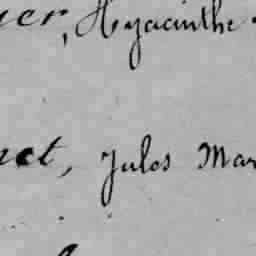 er, Hyacinthe
et, Jules Mar